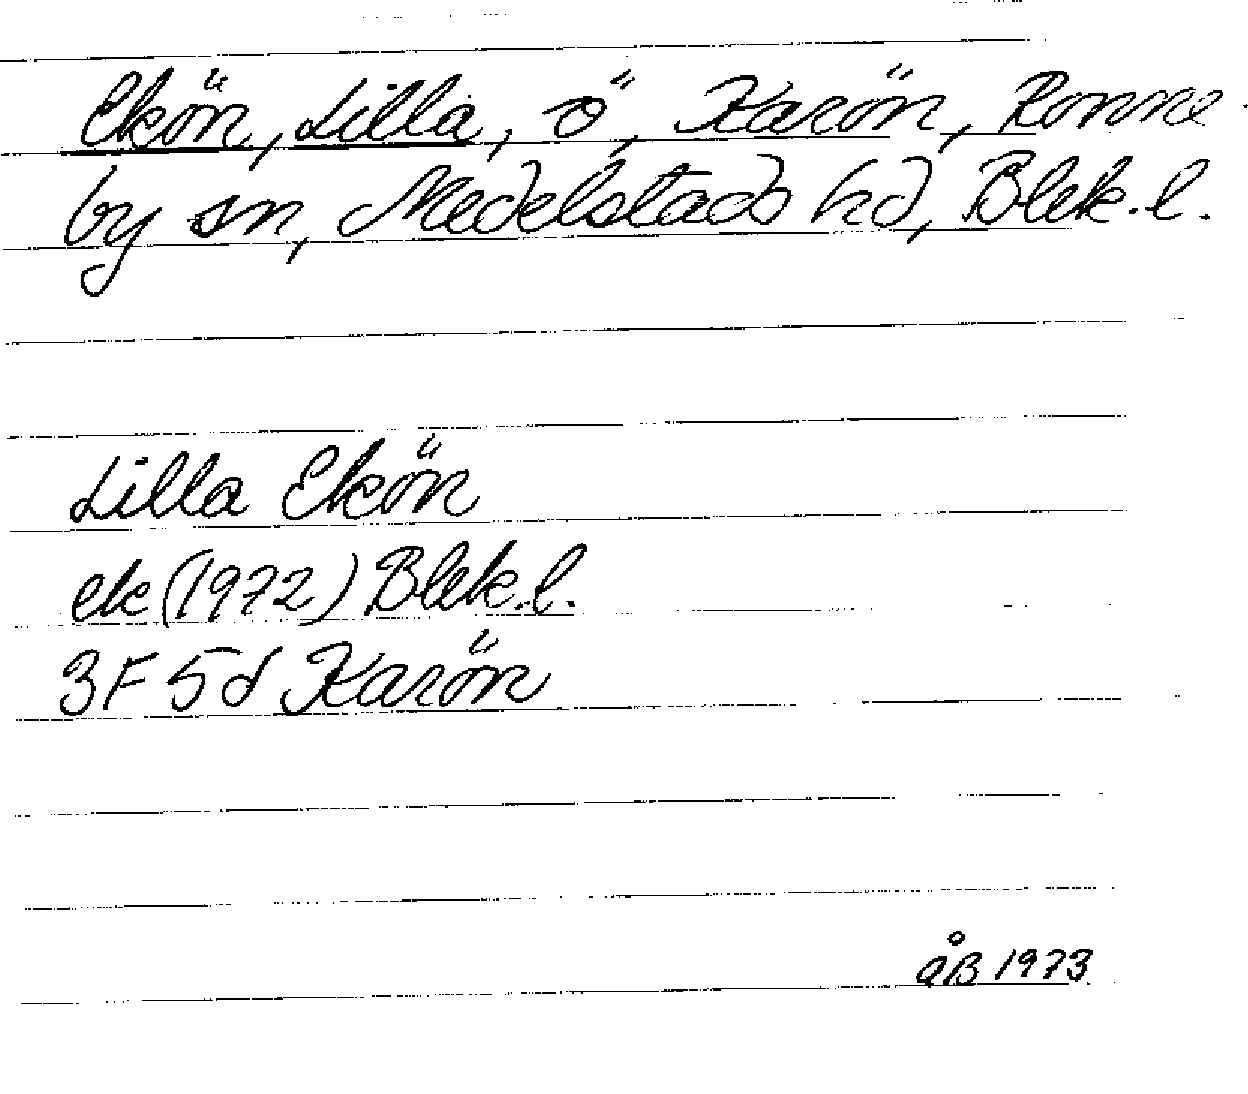 Ekön, Lilla, ö, Karön, Ronne
by sn, Medelstads hd, Blek. l.
Lilla Ekön
ek (1972) Blek. l.
3F 5d Karön
åB 1973